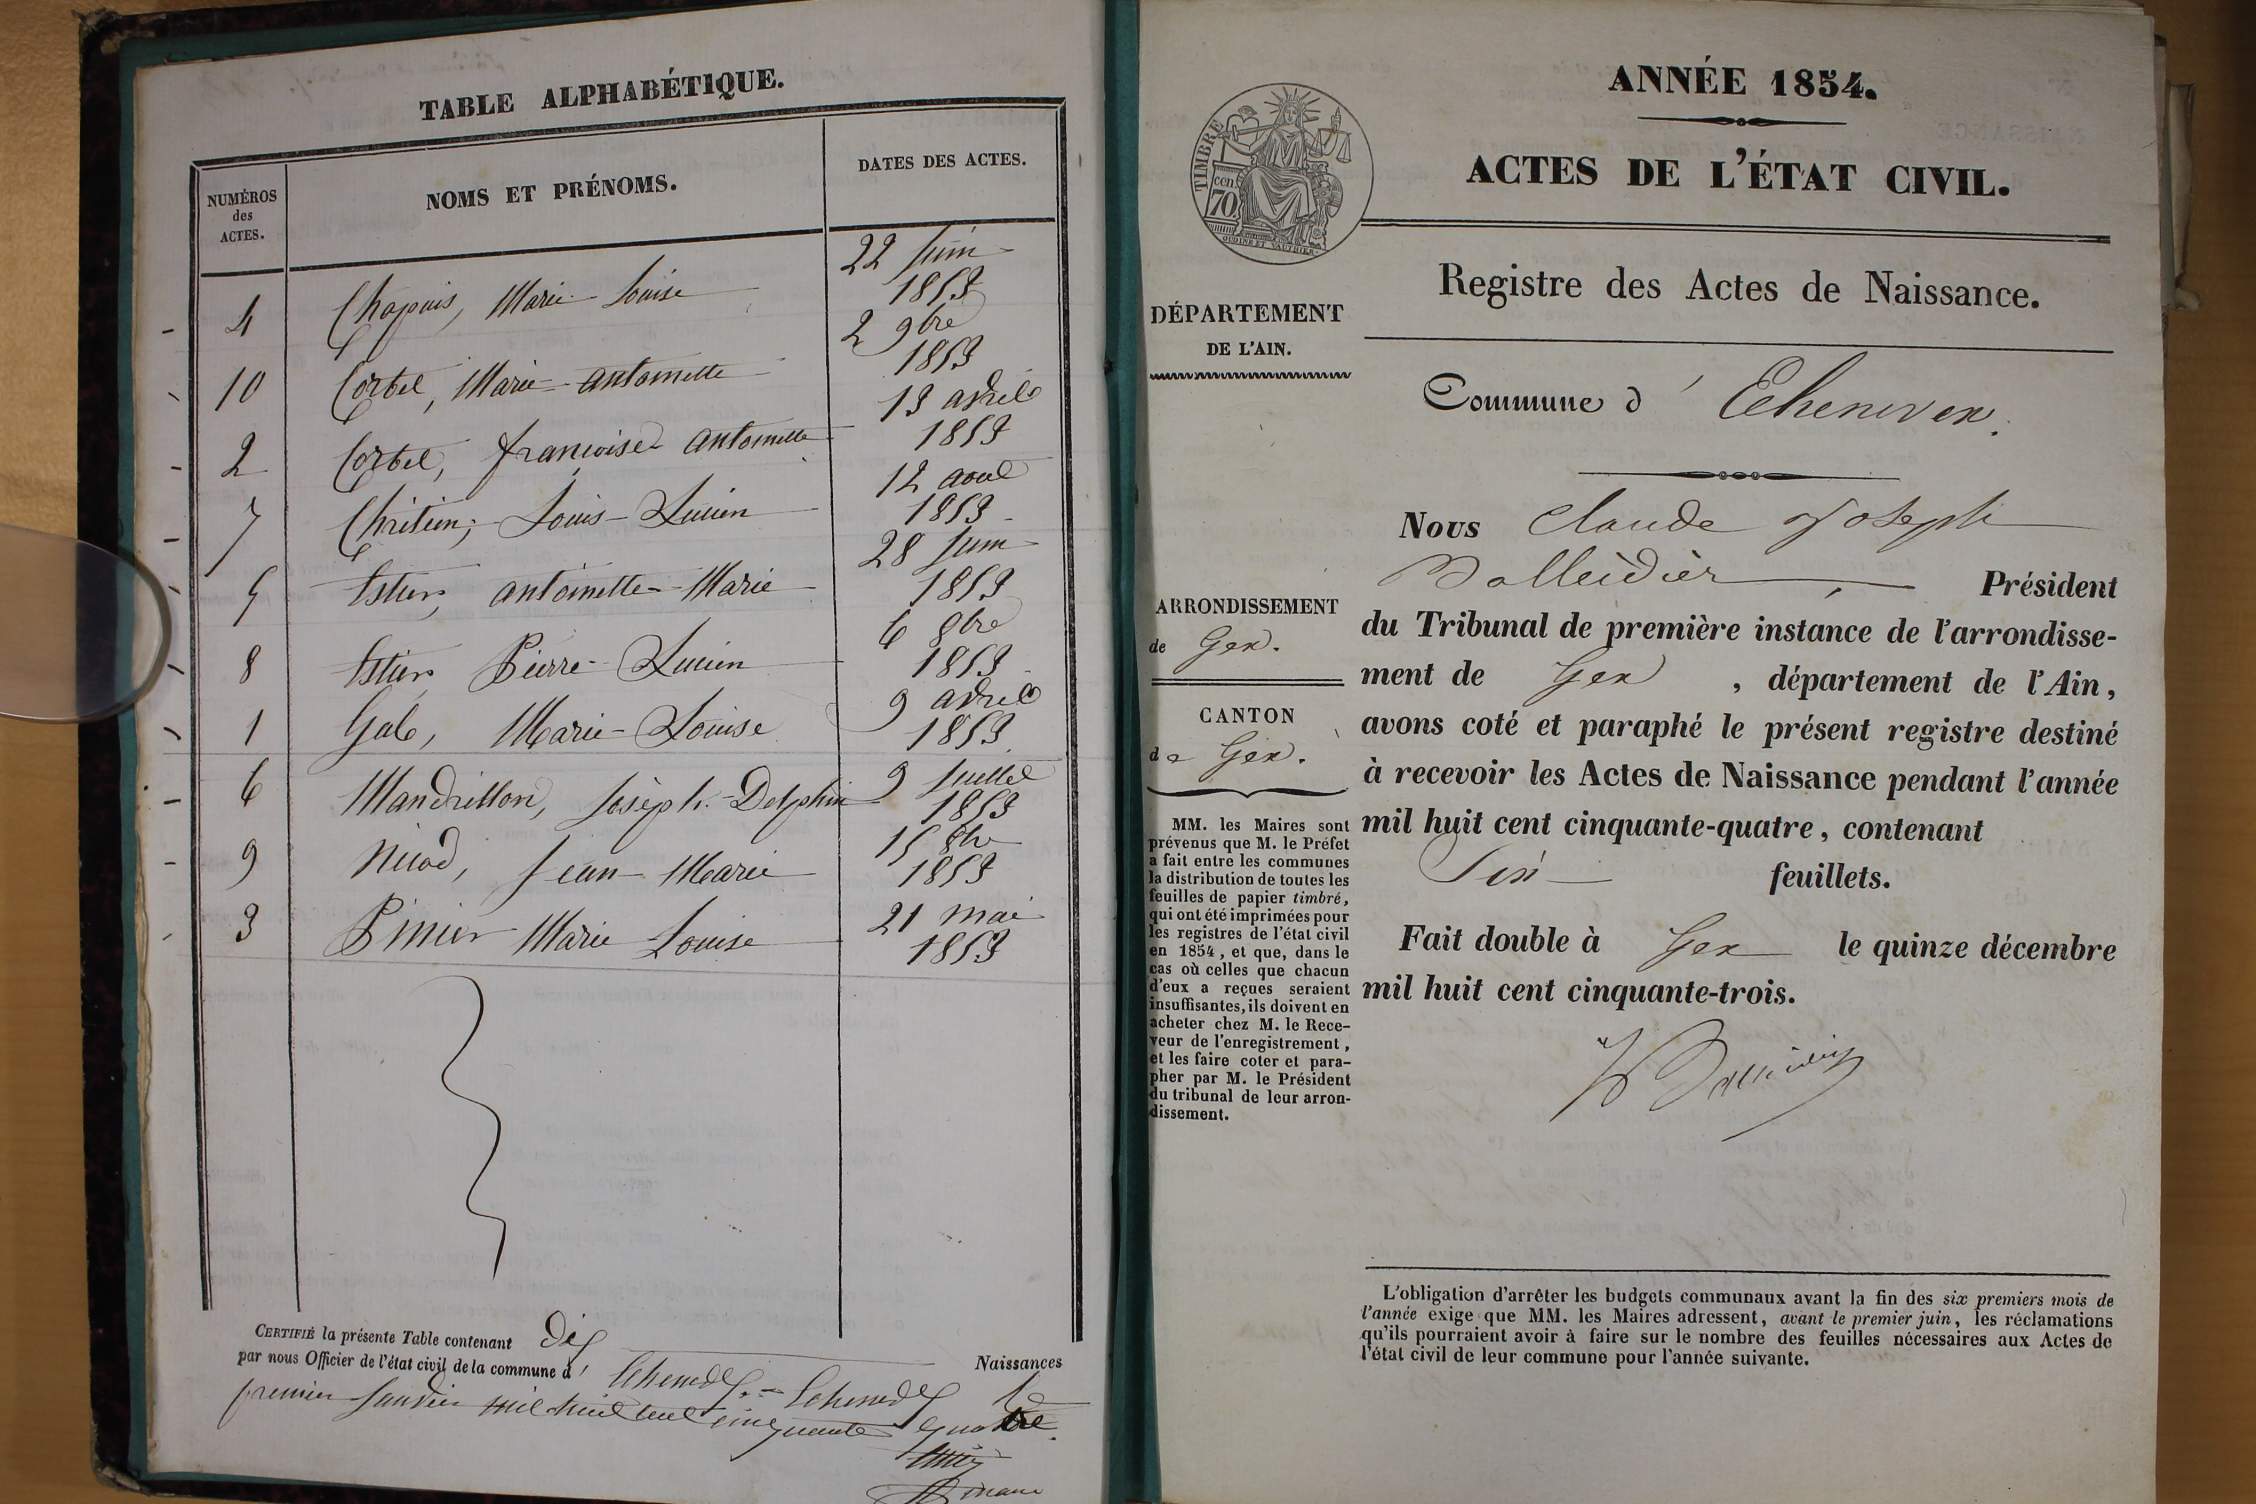 TABLE ALPHABÉTIQUE.
NUMÉROS
des
ACTES.
NOMS ET PRÉNOMS.
DATES DES ACTES.
4 Chapuis, Marie Louise 22 Juin
1853
10 Cortel, Marie-antoinette 2 9bre
1853
2 Cortel, françoise antoinette 13 avril
1853
7 Chrétien, Louis-Lucien 12 aout
1853
5 Estier, antoinette-Marie 28 Juin
1853
8 Estier Pierre-Lucien 6 8bre
1853
1 Galo, Marie-Louise 9 avril
1853
6 Mandrillon, Joseph-Delphin 9 Juillet
1853
9 Nicod, Jean Marie 15 8bre
1853
3 Pinier Marie Louise 21 mai
1853
CERTIFIÉ la présente Table contenant Dix
Naissances
par nous Officier de l'état civil de la commune d'
premier Janvier mil huit cent cinquante quatre.
ANNÉE 1854.
TIMBRE
cen.
70
OUDINÉ ET GAUTHIER
ACTES DE L'ÉTAT CIVIL.
Registre des Actes de Naissance.
DÉPARTEMENT
DE L'AIN.
Commune d' Echenevex.
Nous Claude Joseph
Balleidier, Président
du Tribunal de première instance de l'arrondisse-
ment de Gex, département de l'Ain,
avons coté et paraphé le présent registre destiné
à recevoir les Actes de Naissance pendant l'année
mil huit cent cinquante-quatre, contenant
Six feuillets.
Fait double à Gex le quinze décembre
mil huit cent cinquante-trois.
ARRONDISSEMENT
de Gex.
CANTON
de Gex.
MM. les Maires sont
prévenus que M. le Préfet
a fait entre les communes
la distribution de toutes les
feuilles de papier timbré,
qui ont été imprimées pour
les registres de l'état civil
en 1854, et que, dans le
cas où celles que chacun
d'eux a reçues seraient
insuffisantes, ils doivent en
acheter chez M. le Rece-
veur de l'enregistrement,
et les faire coter et para-
pher par M. le Président
du tribunal de leur arron-
dissement.
L'obligation d'arrêter les budgets communaux avant la fin des six premiers mois de
l'année exige que MM. les Maires adressent, avant le premier juin, les réclamations
qu'ils pourraient avoir à faire sur le nombre des feuilles nécessaires aux Actes de
l'état civil de leur commune pour l'année suivante.